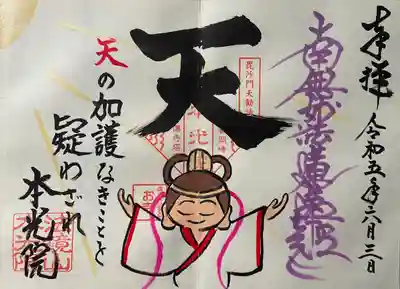 奉拝
令和五年六月三日
南無妙法蓮華経
毘沙門天勧請
天
天の加護なきことを
疑わざれ
本光院